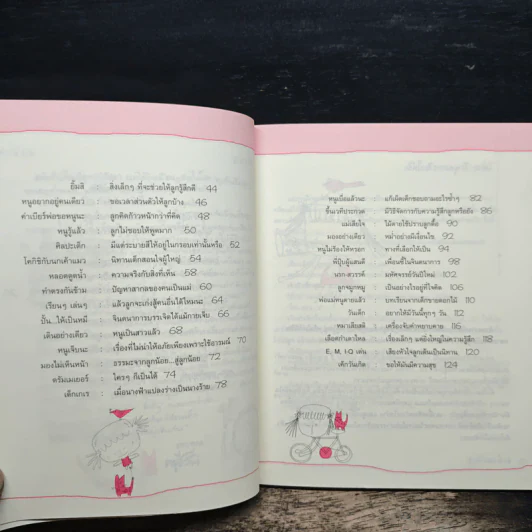 ยิ้มสิ : สิ่งเล็กๆ ที่จะช่วยให้ลูกรู้สึกดี 44
หนูอยากอยู่คนเดียว : ขอเวลาส่วนตัวให้ลูกบ้าง 46
ค่าเบียร์พ่อขอหนูนะ : ลูกคิดก้าวหน้ากว่าที่คิด 48
หนูรู้แล้ว : ลูกไม่ชอบให้พูดมาก 50
ศิลปะเด็ก : มีแต่ระบายสีให้อยู่ในกรอบเท่านั้นหรือ 52
โตกิซิกับนกเค้าแมว : นิทานเด็กสอนใจผู้ใหญ่ 54
หลอดดูดน้ำ : ความจริงกับสิ่งที่เห็น 58
ทำตรงกันข้าม : ปัญหาสากลของคนเป็นแม่ 60
(เรียนๆ เล่นๆ : แล้วลูกจะเก่งสู้คนอื่นได้ไหมนะ 64
ปั้น..ให้เป็นหมี : จินตนาการบรรเจิดได้แม้กายเจ็บ 66
เดินอย่างเดียว : หนูเป็นสาวแล้ว 68
หนูเจ็บนะ : เรื่องที่ไม่น่าให้อภัยเพียงเพราะใช้อารมณ์ 70
มองไม่เห็นหน้า : ธรรมะจากลูกน้อย...สู่ลูกน้อย 72
ดรัมเมเยอร์ : ใครๆ ก็เป็นได้ 74
เด็กเกเร : เมื่อนางฟ้าแปลงร่างเป็นนางร้าย 78
หนูเบื่อแล้วนะ : แก้เผ็ดเด็กชอบถามอะไรซ้ำๆ 82
ขึ้นเวทีประกวด : มีวิธีจัดการกับความรู้สึกลูกหรือยัง 86
แม่เสียใจ : ไม้ตายใช้ปราบลูกดื้อ 90
มองอย่างเดียว : หม่ำอย่างมีเงื่อนไข 92
หนูไม่ร้องให้หรอก : ทางที่เลือกให้เป็น 94
พี่ปุ๊บผู้แสนดี : เพื่อนซี้ในจินตนาการ 98
นรก-สวรรค์ : มหัศจรรย์วันปีใหม่ 102
ลูกจมูกหมู : เป็นอย่างไรอยู่ที่ใจคิด 106
พ่อแม่หนูตายแล้ว : บทเรียนจากเด็กขายดอกไม้ 110
วันเด็ก : อยากให้มีวันนี้ทุกๆ วัน 112
หมาเลียสติ : เครื่องจับคำหยาบคาย 116
เลือดกำเดาไหล : เรื่องเล็กๆ แต่ยิ่งใหญ่ในความรู้สึก 118
E, M, I-Q เด่น : เสียงหัวใจลูกเติมเป็นนิทาน 120
เค้กวันเกิด : ขอให้ฉันมีความสุข 124